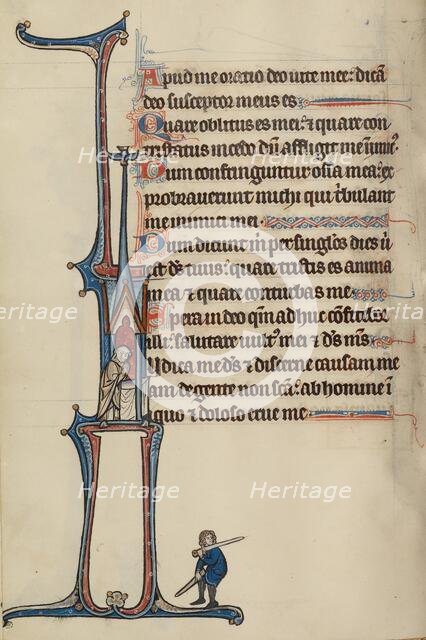 Apud me oratio deo uite mee: dicā
deo susceptor meus es
Quare oblitus es mei: & quare con
tristatus incedo dū affligit me inimic⁹
Dum confringuntur ossa mea: ex
probrauerunt michi qui tribulant
me inimici mei
Dum dicunt in per singlos dies u
est ds tuus: quare tristis es anima
mea & quare conturbas me
Spera in deo qm adhuc confitebor
illi: salutare uult⁹ mei & ds ms
Iudica me ds & discerne causam me
am de gente non scā: ab homine i
iquo & doloso erue me
Heritage
Heritage
Heritage
Heritage
Heritage
Heritage
Heritage